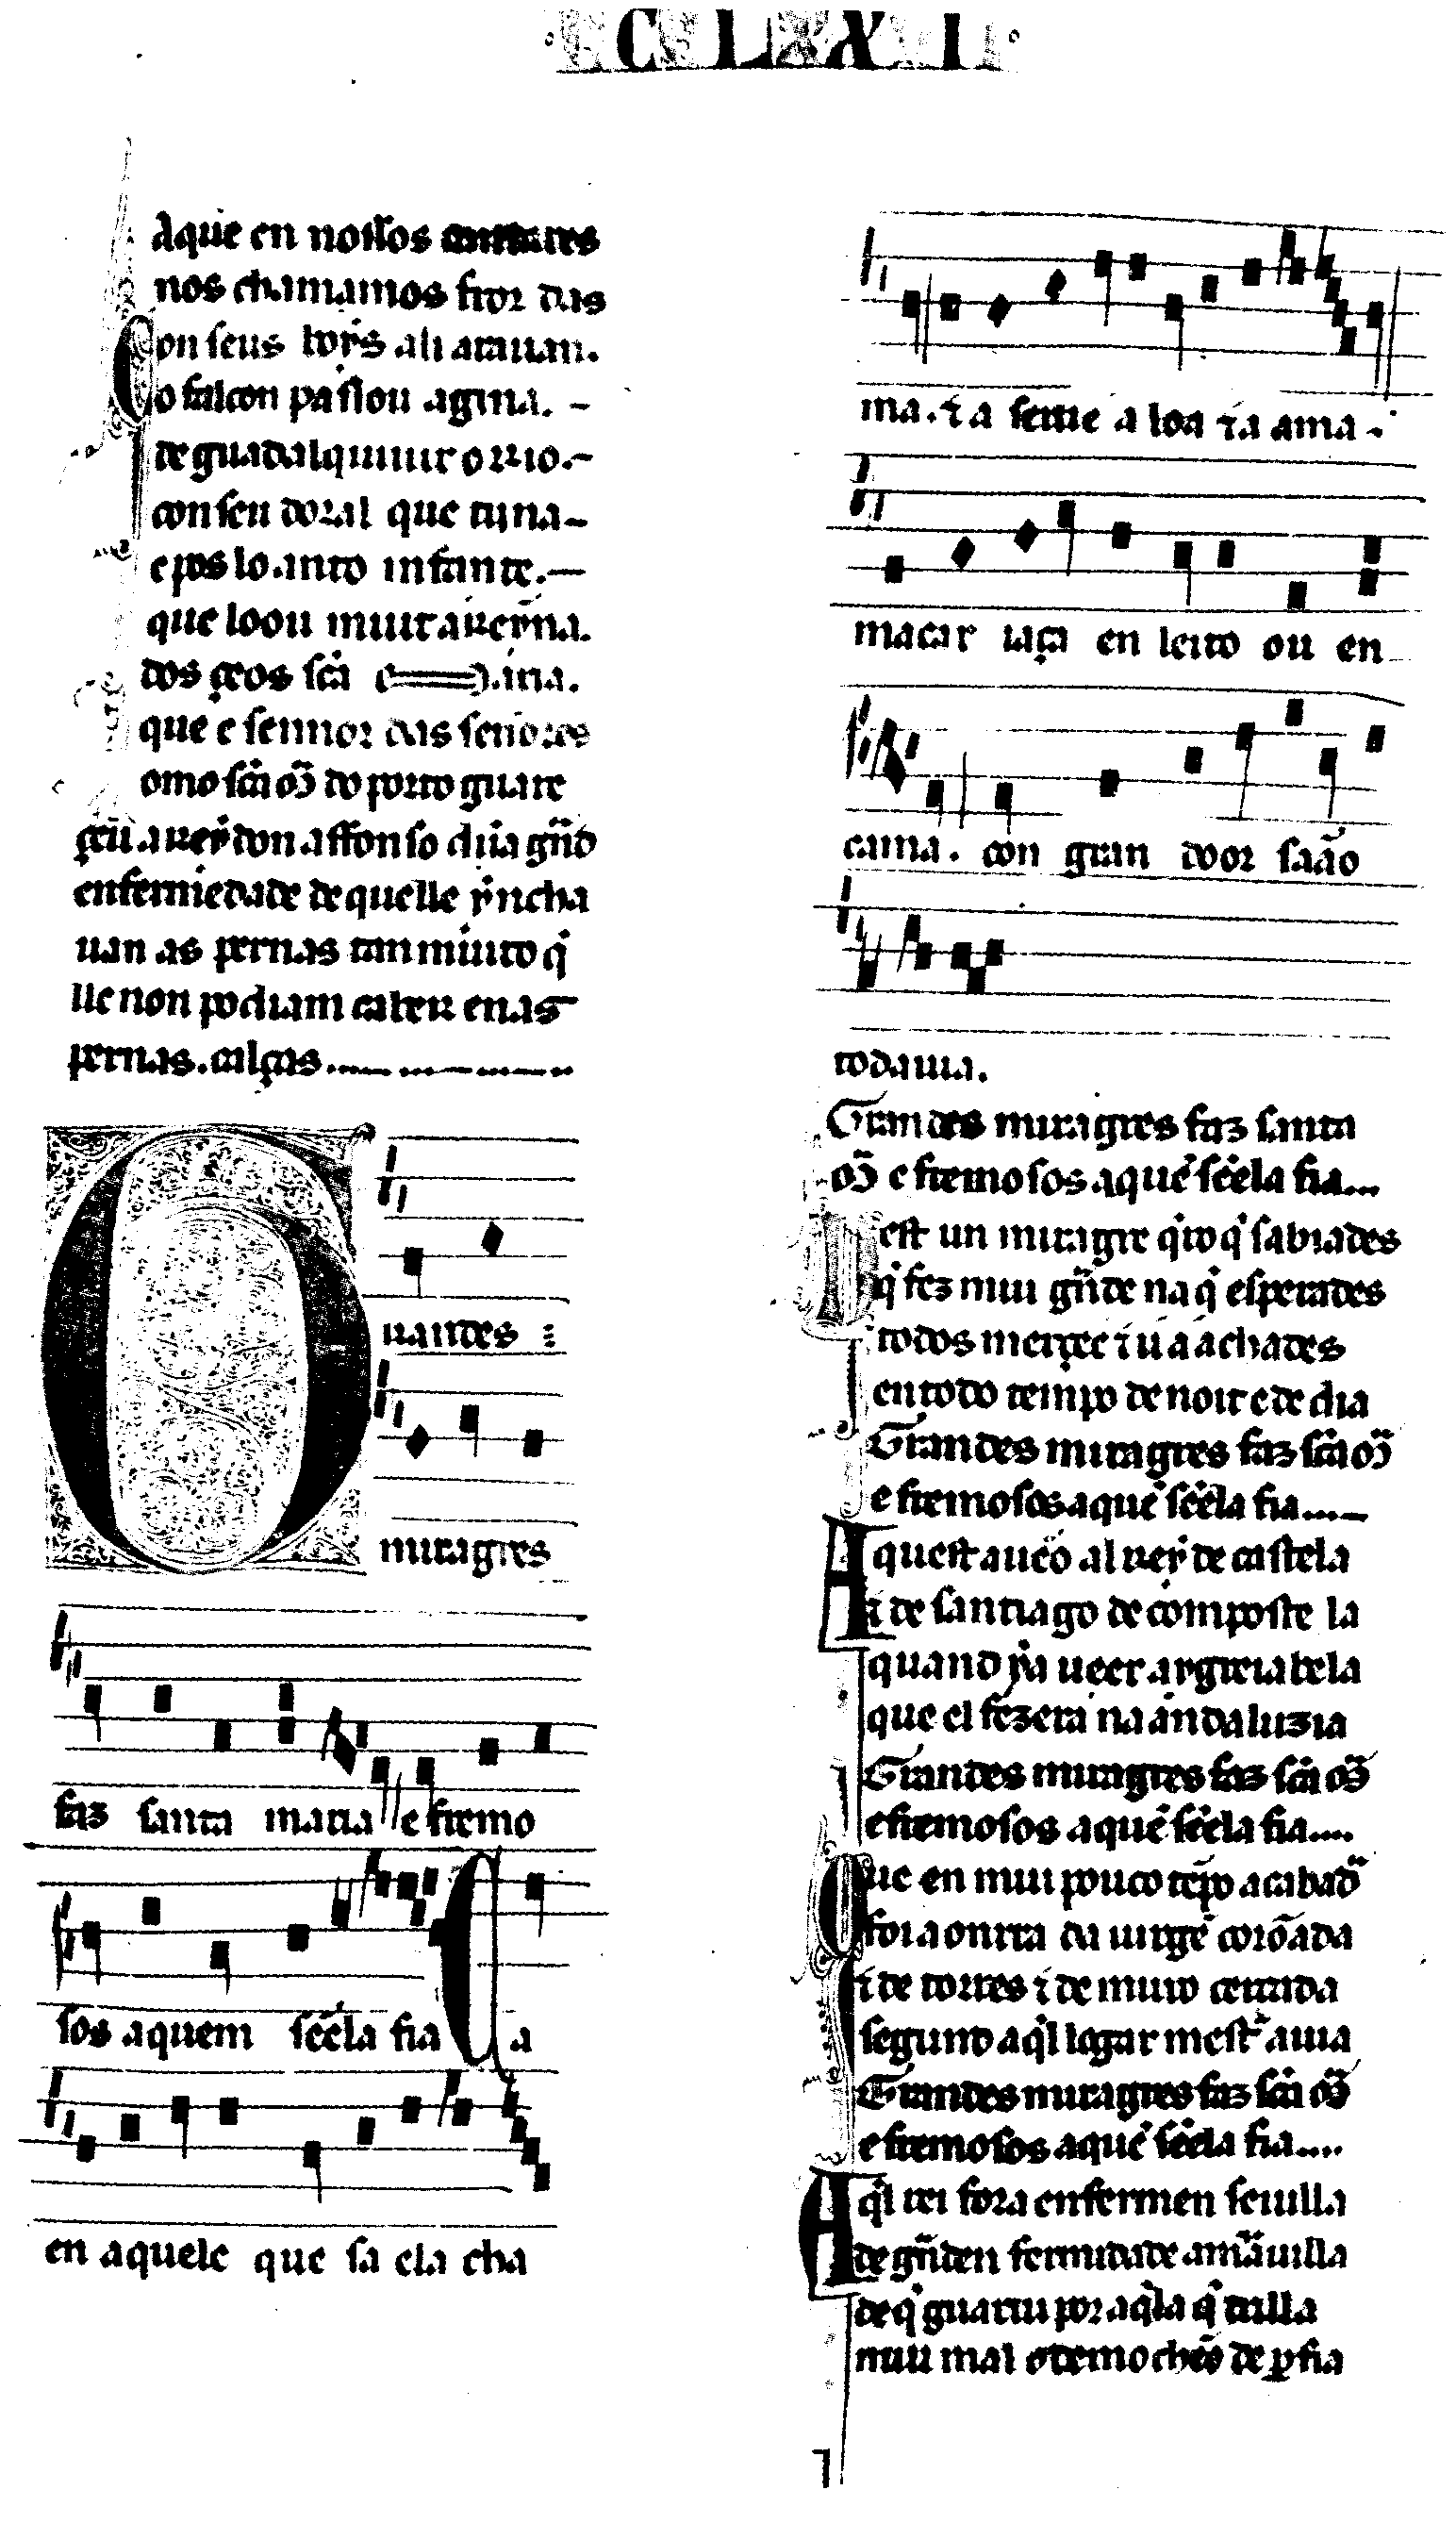 CLXXII
A que en nossos cantares
nos chamamos fror das
Con seus hoỹs ali atauan.
o falcon passou agina. –
de guadalquiuir o rrio.–
con seu doral que tijna–
e pos lo anto infante.—
que loou muit a Reyna.
dos çeos sc̃a e ina.
que e sennor das señores
omo sc̃a m̃ do porto guare
çeu a Rey don affonso dũa gñd
enfermedade de quelle yncha
uan as pernas tan muito q̃
lle non podiam caber enas
pernas. calças.
uandes
miragres
faz santa maria e fremo
sos a quem sẽ ela fia A
en aquele que sa ela cha
ma. ⁊ a serue a loa ⁊ a ama
macar iaça en leito ou en
cama. con gran door saão
todauia.
Grandes miragres faz santa
m̃ e fremosos a quẽ sẽ ela fia...
est un miragre q̃ro q̃ sabiades
q̃ fez mui gñde na q̃ esperades
todos merçee ⁊ u a achades
en todo tempo de noit e de dia
Grandes miragres faz sc̃a m̃
e fremosos a quẽ sẽ ela fia....
Aquest auẽo al Rey de castela
⁊ de santiago de composte la
quand ya ueer a ygreia bela
que el fezera na andaluzia
Grandes miragres faz sc̃a m̃
e fremosos a quẽ sẽ ela fia....
Que en mui pouco tẽpo acabad̃
foi a onrra da uirgẽ corõada
⁊ de torres ⁊ de muro cercada
segund aq̃l logar mest̃ auia
Grandes miragres faz sc̃a m̃
e fremosos a quẽ sẽ ela fia....
Aq̃l rei fora enfermen seuilla
de gñden fermidade a mãuilla
de q̃ guariu por aq̃la q̃ trilla
mui mal o demo chẽo de ꝑfia